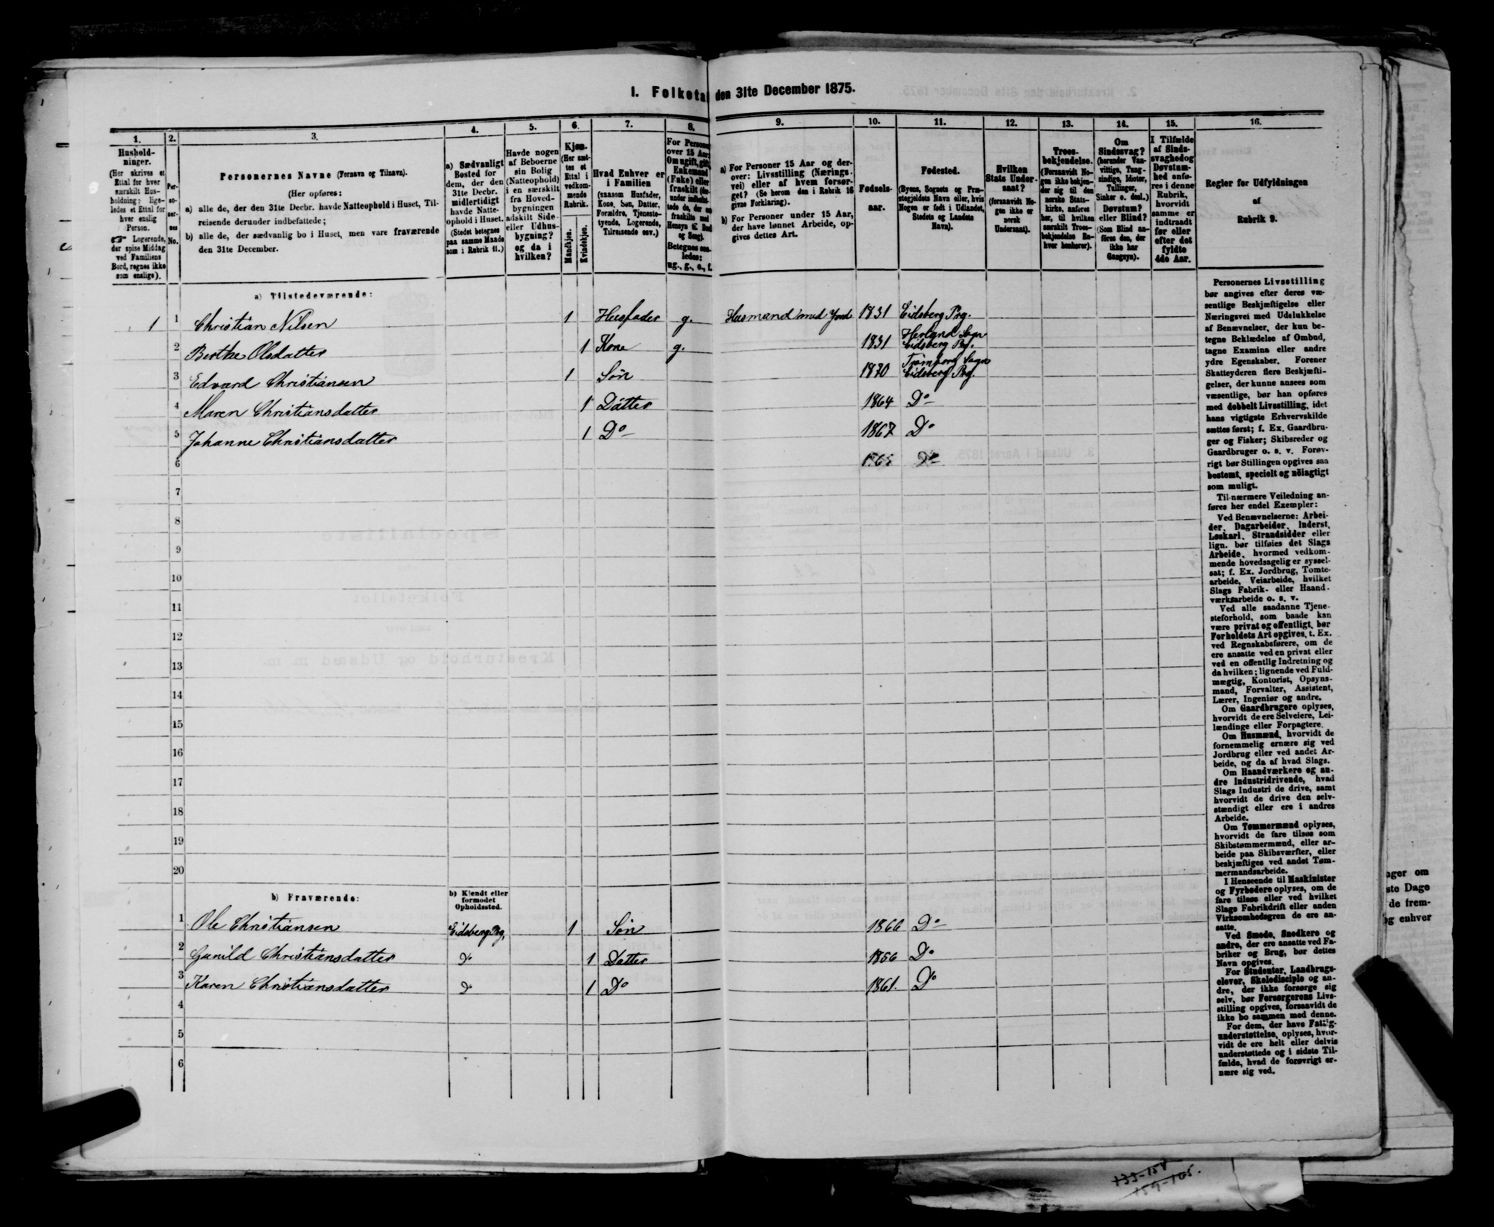 I. Folketal den 31te December 1875.
1. 2. 3. 4. 5. 6. 7. 8. 9. 10. 11. 12. 13. 14. 15. 16.
Hushold-
ninger.
(Her skrives et
Ettal for hver
særskilt Hus-
holdning; lige-
ledes et Ettal for
hver enslig
Person.
Logerende,
der spise Middag
ved Familiens
Bord, regnes ikke
som enslige).
Per-
so-
ner-
nes
No.
Personernes Navne (Fornavn og Tilnavn).
(Her opføres:
a) alle de, der den 31te Decbr. havde Natteophold i Huset, Til-
reisende derunder indbefattede;
b) alle de, der sædvanlig bo i Huset, men vare fraværende
den 31te December.
a) Sædvanligt
Bosted for
dem, der den
31te Decbr.
midlertidigt
havde Natte-
ophold i Huset.
(Stedet betegnes
paa samme Maade
som i Rubrik 11.)
Havde nogen
af Beboerne
sin Bolig
(Natteophold)
i en særskilt
fra Hoved-
bygningen
adskilt Side-
eller Udhus-
bygning?
og da i
hvilken?
Kjøn.
(Her sæt-
tes et
Ettal i
vedkom-
mende
Rubrik.
Mandkjøn.
Kvindekjøn.
Hvad Enhver er
i Familien
(saasom Husfader,
Kone, Søn, Datter,
Forældre, Tjeneste-
tyende, Logerende,
Tilreisende osv.)
For Personer
over 15 Aar:
Om ugift, gift,
Enkemand
(Enke) eller
fraskilt
Betegnes saa-
ledes:
ug., g., e., f.
a) For Personer 15 Aar og der-
over: Livsstilling (Nærings-
vei) eller af hvem forsør-
get? (Se herom den i Rubrik 16
givne Forklaring).
b) For Personer under 15 Aar,
der have lønnet Arbeide, op-
gives dettes Art.
Fødsels-
aar.
Fødested.
(Byens, Sognets og Præ-
stegjeldets Navn eller, hvis
Nogen er født i Udlandet,
Stedets og Landets
Navn).
Hvilken
Stats Under-
saat?
(forsaavidt No-
gen ikke er
norsk
Undersaat).
Troes-
bekjendelse.
(Forsaavidt No-
gen ikke bekjen-
der sig til den
norske Stats-
kirke, anføres
her, til hvilken
særskilt Troes-
bekjendelse En-
hver henhører).
Om
Sindssvag?
(herunder Van-
vittige, Tung-
sindige, Idioter,
Tullinger,
Sinker o. desl.)
Døvstum?
eller Blind?
(Som Blind an-
føres den, der
ikke har
Gangsyn).
I Tilfælde
af Sinds-
svaghed og
Døvstum-
hed anfø-
res i denne
Rubrik,
hvorvidt
samme er
indtraadt
før eller
efter det
fyldte
4de Aar.
Regler for Udfyldningen
af
Rubrik 9.
a) Tilstedeværende:
1 1 Christian Nilsen 1 Husfader g. Husmand med Jord 1831 Eidsberg Prg.
2 Berthe Olsdatter 1 Kone g. 1831 Herland Sogn Eidsberg Prg.
3 Edvard Christiansen 1 Søn 1870 Trømborg Sogn Eidsberg Prg.
4 Maren Christiansdatter 1 Datter 1864 Do
5 Johanne Christiansdatter 1 Do 1867 Do
6 Do
7
8
9
10
11
12
13
14
15
16
17
18
19
20
b) Fraværende:
b) Kjendt eller
formodet
Opholdssted.
1 Ole Christiansen Eidsberg Prg. 1 Søn 1860 Do
2 Gunild Christiansdatter do 1 Datter 1856 Do
3 Karen Christiansdatter do 1 Do 1861 Do
4
5
6
Personernes Livsstilling
bør angives efter deres væ-
sentlige Beskjæftigelse eller
Næringsvei med Udelukkelse
af Benævnelser, der kun be-
tegne Bekjlædelse af Ombud,
tagne Examina eller andre
ydre Egenskaber. Forener
Skatteyderen flere Beskjæfti-
gelser, der kunne ansees som
væsentlige, bør han opføres
med dobbelt Livsstilling, idet
hans vigtigste Erhvervskilde
sættes først; f. Ex. Gaardbru-
ger og Fisker; Skibsreder og
Gaardbruger o. s. v. Forøv-
rigt bør Stillingen opgives saa
bestemt, specielt og nøiagtigt
som muligt.
Til nærmere Veiledning an-
føres her endel Exempler:
Ved Benævnelserne: Arbei-
der, Dagarbeider, Inderst,
Løskarl, Strandsidder eller
lign. bør tilføies det Slags
Arbeide, hvormed vedkom-
mende hovedsagelig er syssel-
sat; f. Ex. Jordbrug, Tomte-
arbeide, Veiarbeide, hvilket
Slags Fabrik- eller Haand-
værksarbeide o. s. v.
Ved alle saadanne Tjene-
steforhold, som baade kan
være privat og offentligt, bør
Forholdets Art opgives, t. Ex.
ved Regnskabsførere, om de
ere ansatte ved en privat eller
ved en offentlig Indretning og
da hvilken; lignende ved Fuld-
mægtig, Kontorist, Opsyns-
mand, Forvalter, Assistent,
Lærer, Ingeniør og andre.
Om Gaardbrugere oplyses,
hvorvidt de ere Selveiere, Lei-
lændinge eller Forpagtere.
Om Husmænd, hvorvidt de
fornemmelig ernære sig ved
Jordbrug eller ved andet Ar-
beide, og da af hvad Slags.
Om Haandværkere og an-
dre Industridrivende, hvad
Slags Industri de drive, samt
hvorvidt de drive den selv-
stændigt eller ere i andres
Arbeide.
Om Tømmermænd oplyses,
hvorvidt de fare tilsøs som
Skibstømmermænd, eller ar-
beide paa Skibsværfter, eller
beskjæftiges ved andet Tøm-
mermandsarbeide.
I Henseende til Maskinister
og Fyrbødere oplyses, om de
fare tilsøs eller ved hvilket
Slags Fabrikdrift eller anden
Virksomhedsgren de ere an-
satte.
Ved Smede, Snedkere og
andre, der ere ansatte ved Fa-
briker og Brug, bør dettes
Navn opgives.
For Studenter, Landbrugs-
elever, Skoledisciple og an-
dre, der ikke forsørge sig
selv, bør Forsørgerens Livs-
stilling opgives, forsaavidt de
ikke bo sammen med denne.
For dem, der have Fattig-
understøttelse, oplyses, hvor-
vidt de ere helt eller delvis
understøttede og i sidste Til-
fælde, hvad de forøvrigt er-
nære sig ved.
ager om
ste Dage
de frem-
og enhver
133-158
159-165.